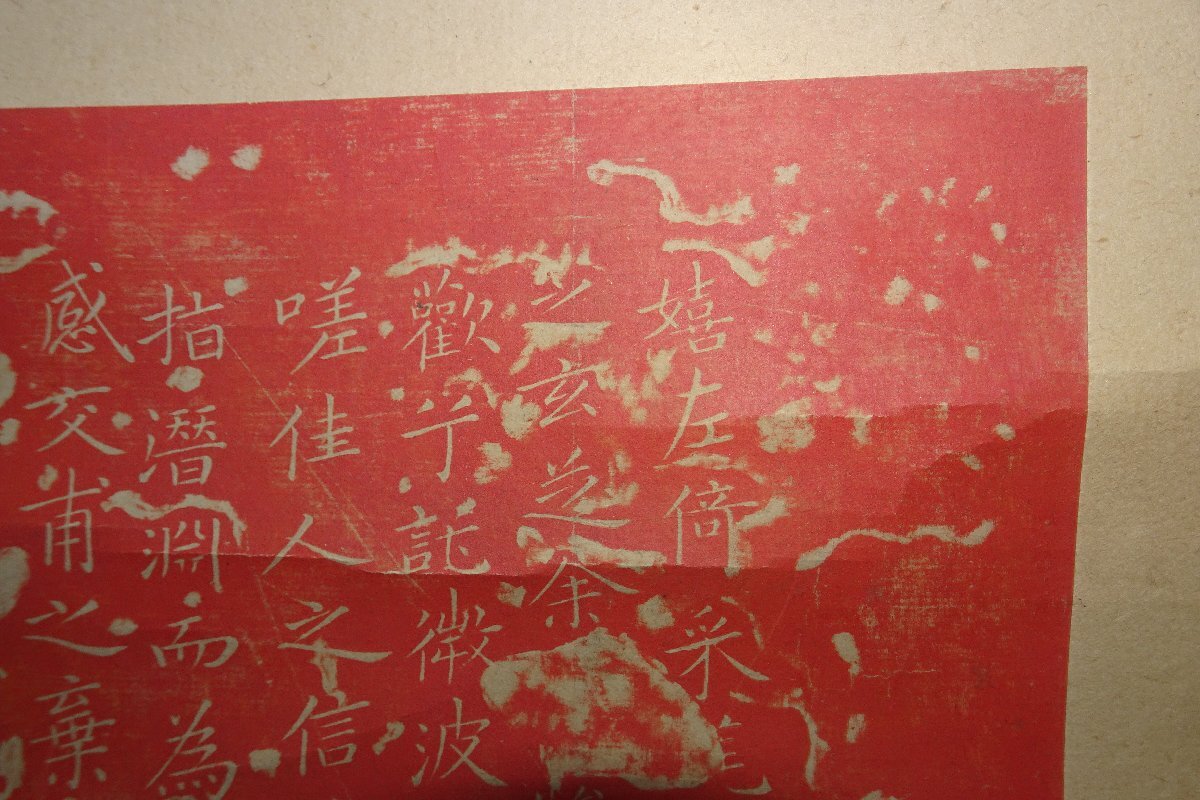 嬉左倚采
之玄芝余
歡兮託微波
嗟佳人之信
指潛淵而為
感交甫之棄